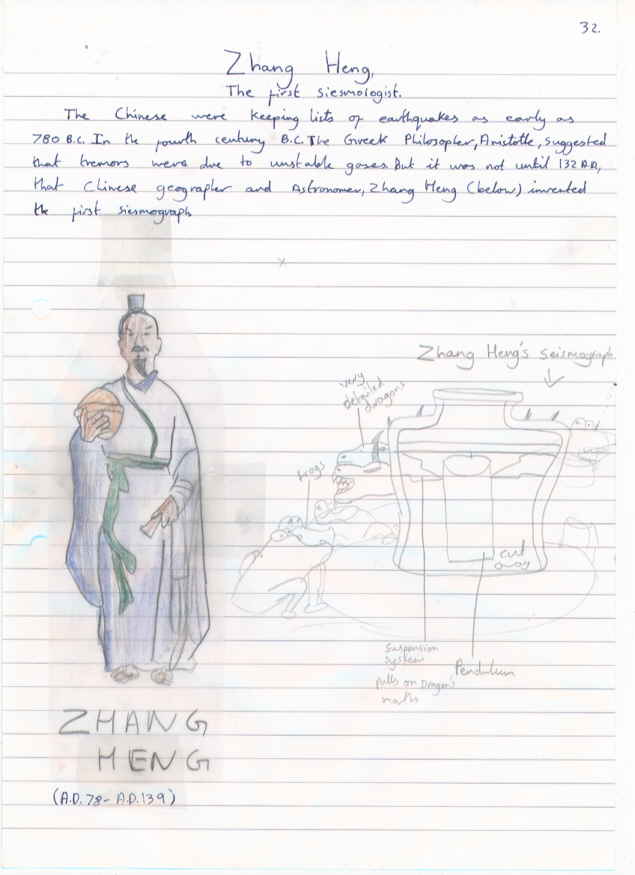 32.
Zhang Heng,
The first siesmologist.
The Chinese were keeping lists of earthquakes as early as
780 B.C. In the fourth century B.C. The Greek Philosopher, Aristotle, suggested
that tremors were due to unstable gases But it was not until 132 A.D,
that Chinese geographer and Astronomer, Zhang Heng (below) invented
the first siesmograph
Zhang Heng's Seismograph
very
detailed
dragons
frogs
cut
away
Suspension
System
pulls on Dragon's
mouths
Pendulum
ZHANG
HENG
(A.D. 78 - A.D. 139)